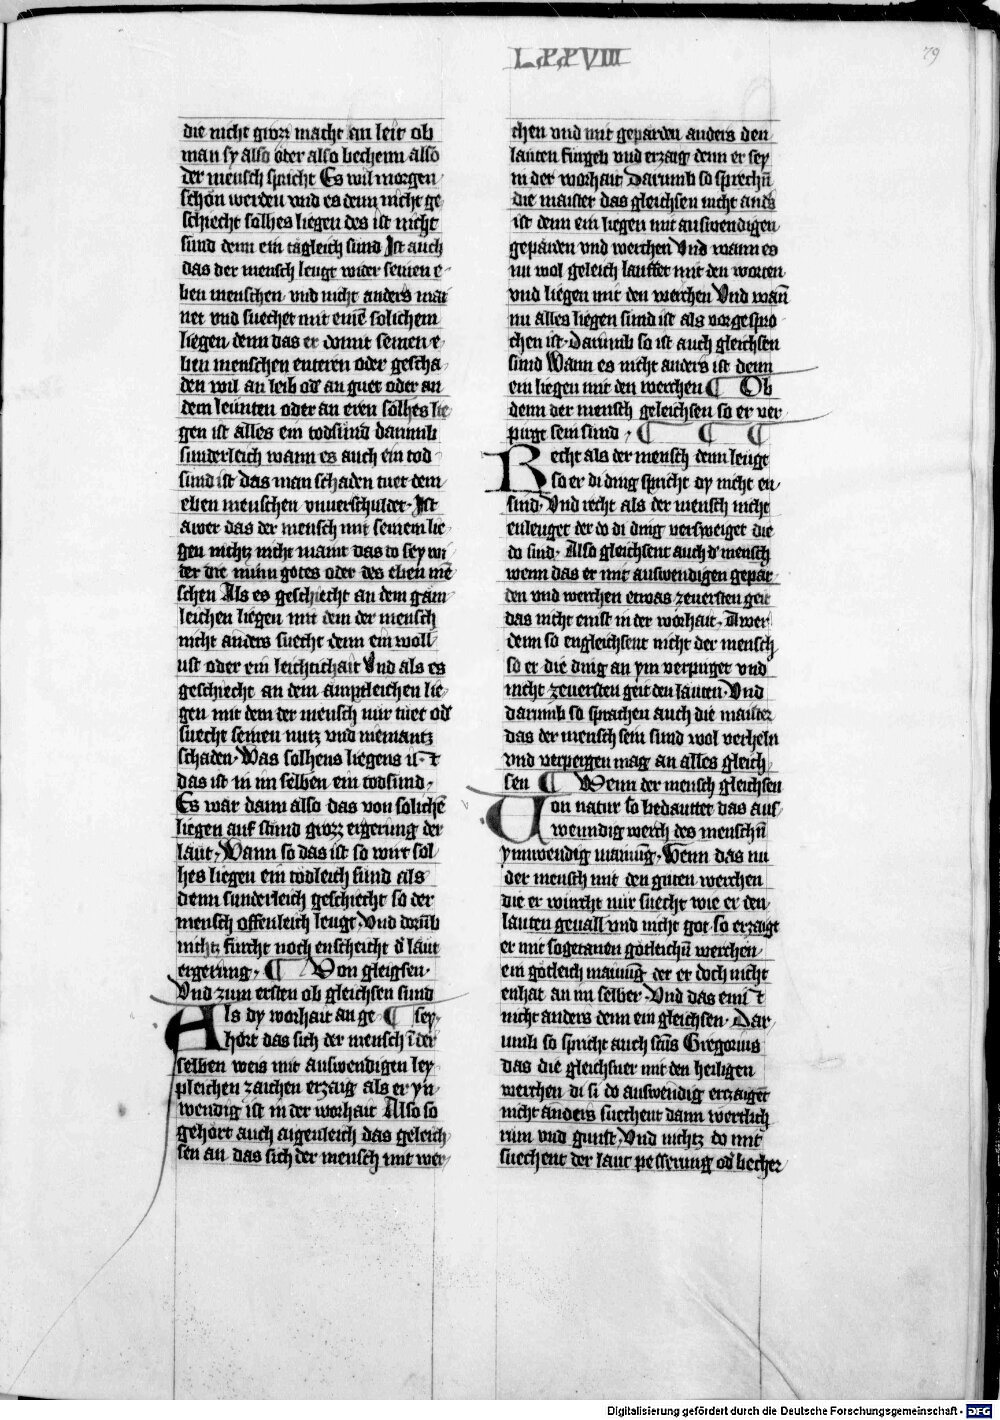 LXXVIII
79
die nicht gross macht an leit ob
man sy also oder also bechenn also
der mensch spricht Es wil morgen
schon werden vnd es denn nicht ge
schiecht solhes liegen des ist nicht
sund denn ein tagleich sund Ist auch
das der mensch leugt wider seinen e
ben menschen vnd nicht anders mai
net vnd suechet mit einē solichem
liegen denn das er domit seinen e
ben menschen enteren oder gescha
den wil an leib od̕ an guet oder an
dem leunten oder an eren solhes lie
gen ist alles ein todsund darumb
sunderleich wann es auch ein tod
sund ist das man schaden tuet dem
eben menschen vnuerschulder Ist
awer das der mensch mit seinem lie
gen nichtz nicht maint das do sey wi
der die minn gotes oder des eben mē
schen Als es geschiecht an dem gam
leichen liegen mit dem der mensch
nicht anders suecht denn ein woll
ust oder ein leichtichait Vnd als es
geschiecht an dem amptleichen lie
gen mit dem der mensch nur tuet od̕
suecht seinen nutz vnd niemantz
schaden Was solhens liegens ist
das ist in im selben ein todsund
Es war dann also das von solichē
liegen auf stund grozz ergerung der
laut Wann so das ist so wirt sol
hes liegen ein todleich sund als
denn sunderleich geschiecht so der
mensch offenleich leugt Vnd dorūb
nichtz furcht noch enscheicht d̕ laut
ergerung ¶ Von gleigsen
Vnd zum ersten ob gleichsen sund
Als dy worhait an ge ¶ sey
hort das sich der mensch ī der
selben weis mit auswendigen ley
pleichen zaichen erzaig als er yn
wendig ist in der worhait Also so
gehort auch aigenleich das geleich
sen an das sich der mensch mit wer
chen vnd mit geparden anders den
lauten furgeb vnd erzaig denn er sey
in der worhait Darumb so sprechn̄
die maister das gleichsen nicht and̕s
ist denn ein liegen mit auswendigen
geparden vnd werchen Vnd wann es
nu wol geleich lauffet mit den worten
vnd liegen mit den werchen Vnd wan̄
nu alles liegen sund ist als vorgespro
chen ist Darumb so ist auch gleichsen
sund Wann es nicht anders ist denn
ein liegen mit den werchen ¶ Ob
denn der mensch geleichsen so er ver
pirgt sein sund ¶ ¶ ¶
Recht als der mensch denn leugt
so er di ding spricht dy nicht en
sind Vnd recht als der mensch nicht
enleuget der do di ding versweiget die
do sind Also gleichsent auch d̕ mensch
wenn das er mit auswendigen gepar
den vnd werchen etwas zeuersten geit
das nicht enist in der worhait Awer
denn so engleichsent nicht der mensch
so er die ding an ym verpirget vnd
nicht zeuersten geit den lauten Vnd
darumb so sprachen auch die maister
das der mensch sein sund wol verheln
vnd verpergen mag an alles gleich
sen ¶ Wenn der mensch gleichsen
Von natur so bedauttet das aus
wenndig werch des menschn̄
ynnwendig mainūg Wenn das nu
der mensch mit den guten werchen
die er wircht nur suecht wie er den
lauten geuall vnd nicht got so erzaigt
er mit sogetanen gotleichn̄ werchen
ein gotleich mainūg der er doch nicht
enhat an im selber Vnd das enist
nicht anders denn ein gleichsen Dar
umb so spricht auch scūs Gregorius
das die gleichsner mit den heiligen
werchen di si do auswendig ertzaigen
nicht anders suechent dann werltlich
rum vnd gunst Vnd nichtz do mit
suechent der laut pesserung od̕ becher
Digitalisierung gefördert durch die Deutsche Forschungsgemeinschaft - DFG